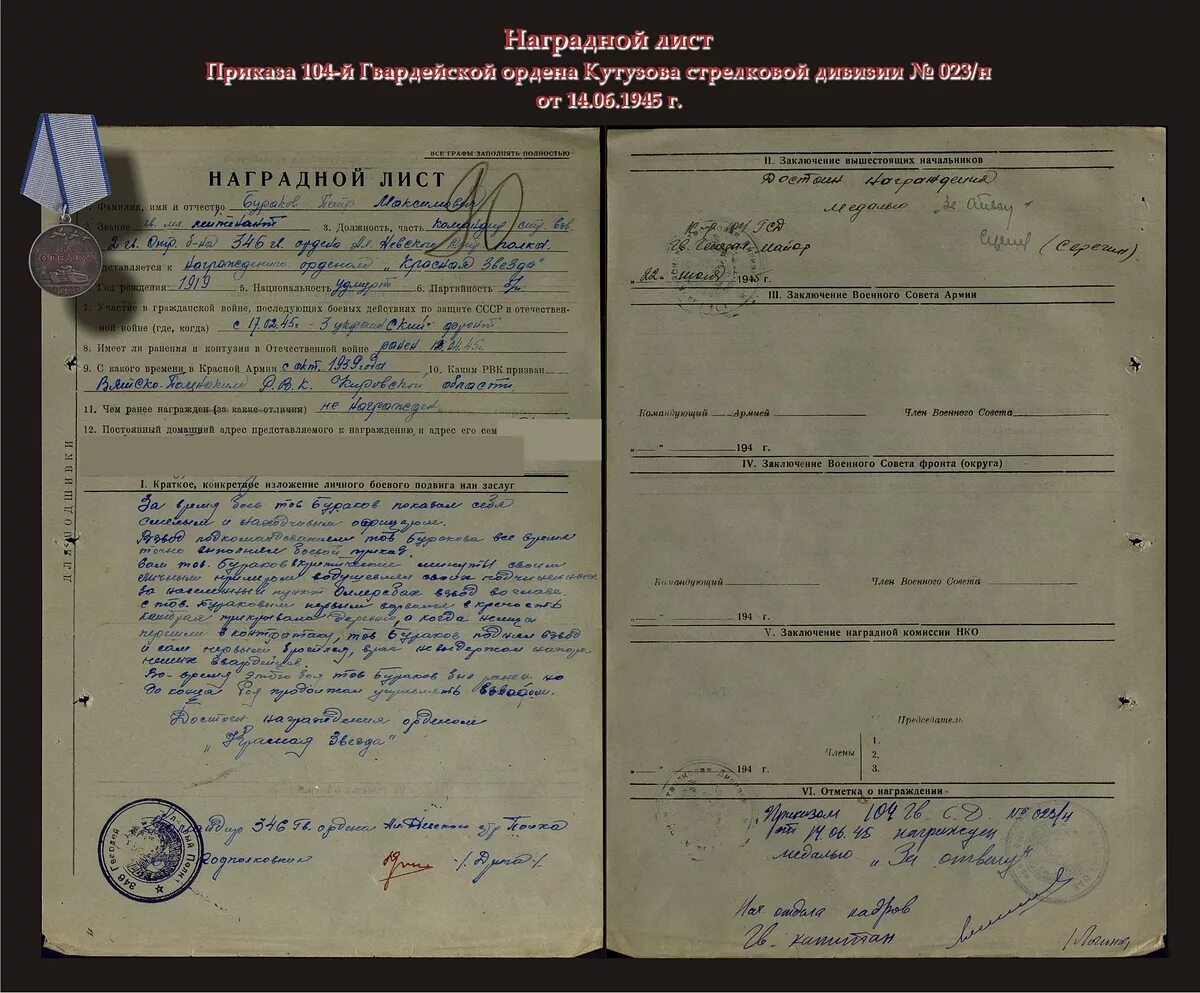 Наградной лист
Приказа 104-й Гвардейской ордена Кутузова стрелковой дивизии № 023/н
от 14.06.1945 г.
ВСЕ ГРАФЫ ЗАПОЛНЯТЬ ПОЛНОСТЬЮ
НАГРАДНОЙ ЛИСТ
Фамилия, имя и отчество Бураков Петр Максимович
2. Звание гв. мл. лейтенант 3. Должность, часть командир
346 гв. полка
представляется к награждению орденом „Красная Звезда"
Год рождения 1919 5. Национальность удмурт 6. Партийность б/п
7. Участие в гражданской войне, последующих боевых действиях по защите СССР и отечествен-
ной войне (где, когда) с 17.02.45г. - 3 украинский фронт
8. Имеет ли ранения и контузии в Отечественной войне ранен
9. С какого времени в Красной Армии с окт. 1939 года 10. Каким РВК призван
Вятско-Полянским Р.В.К. Кировской области
11. Чем ранее награжден (за какие отличия) не награжден
12. Постоянный домашний адрес представляемого к награждению и адрес его сем
ДЛЯ ПОДШИВКИ
I. Краткое, конкретное изложение личного боевого подвига или заслуг
За время боев тов Бураков показал себя
смелым и находчивым офицером.
Взвод под командованием тов Буракова все время
точно выполнял боевой приказ.
Сам тов. Бураков в критические минуты своим
личным примером воодушевлял своих подчиненных
за населенный пункт взвод во главе
с тов. Бураковым первым ворвался в
прикрывала деревню, а когда немцы
перешли в контратаку, тов Бураков поднял взвод
и сам первый бросился, враг не выдержал напора
наших гвардейцев.
Во-время этого боя тов Бураков был ранен но
до конца боя продолжал управлять взводом.
Достоин награждения орденом
„Красная Звезда"
Командир 346 Гв. ордена Ал. Невского стр Полка
подполковник
II. Заключение вышестоящих начальников
Достоин награждения
медалью „За отвагу"
104 ГСД
Гв. Генерал майор (Серегин)
1945 г.
III. Заключение Военного Совета Армии
Командующий Армией Член Военного Совета
„ " 194 г.
IV. Заключение Военного Совета фронта (округа)
Командующий Член Военного Совета
„ " 194 г.
V. Заключение наградной комиссии НКО
Председатель
Члены
1.
2.
3.
„ " 194 г.
VI. Отметка о награждении
Приказом 104 Гв. С.Д. № 023/н
от 14.06.45 награжден
медалью „За отвагу"
Нач. отдела кадров
Гв. капитан